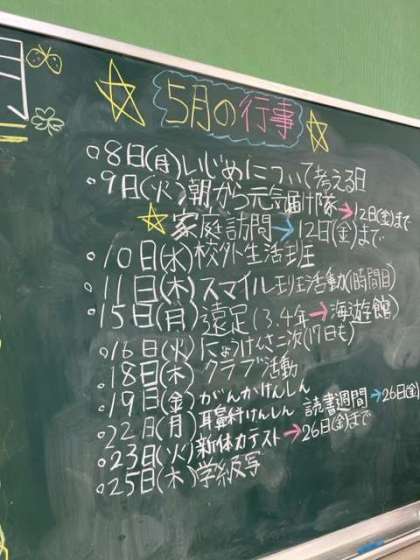 月
5月の行事
○8日(月)いじめについて考える日
○9日(火)朝から元気届け隊→12日(金)まで
家庭訪問→12日(金)まで
○10日(水)校外生活班
○11日(木)スマイル班活動(1時間目)
○15日(月)遠足(3.4年→海遊館)
○16日(火)にょうけんさ二次(17日も)
○18日(木)クラブ活動
○19日(金)がんかけんしん
○22日(月)耳鼻科けんしん 読書週間→26日(金)
○23日(火)新体力テスト→26日(金)まで
○25日(木)学級写